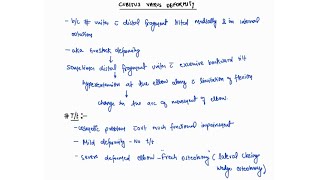 CUBITUS VARUS DEFORMITY
- b/c # unites c̄ distal fragment tilted medially & in internal
rotation
- aka Gunstock deformity
- sometimes distal fragment unites c̄ excessive backward tilt
hyperextension at the elbow along c̄ limitation of flexion
change in the arc of movement of elbow
# T/t :-
- cosmetic problem - not much functional impairment
- Mild deformity - No T/t
- Severe deformed elbow - French osteotomy (lateral closing
wedge osteotomy)